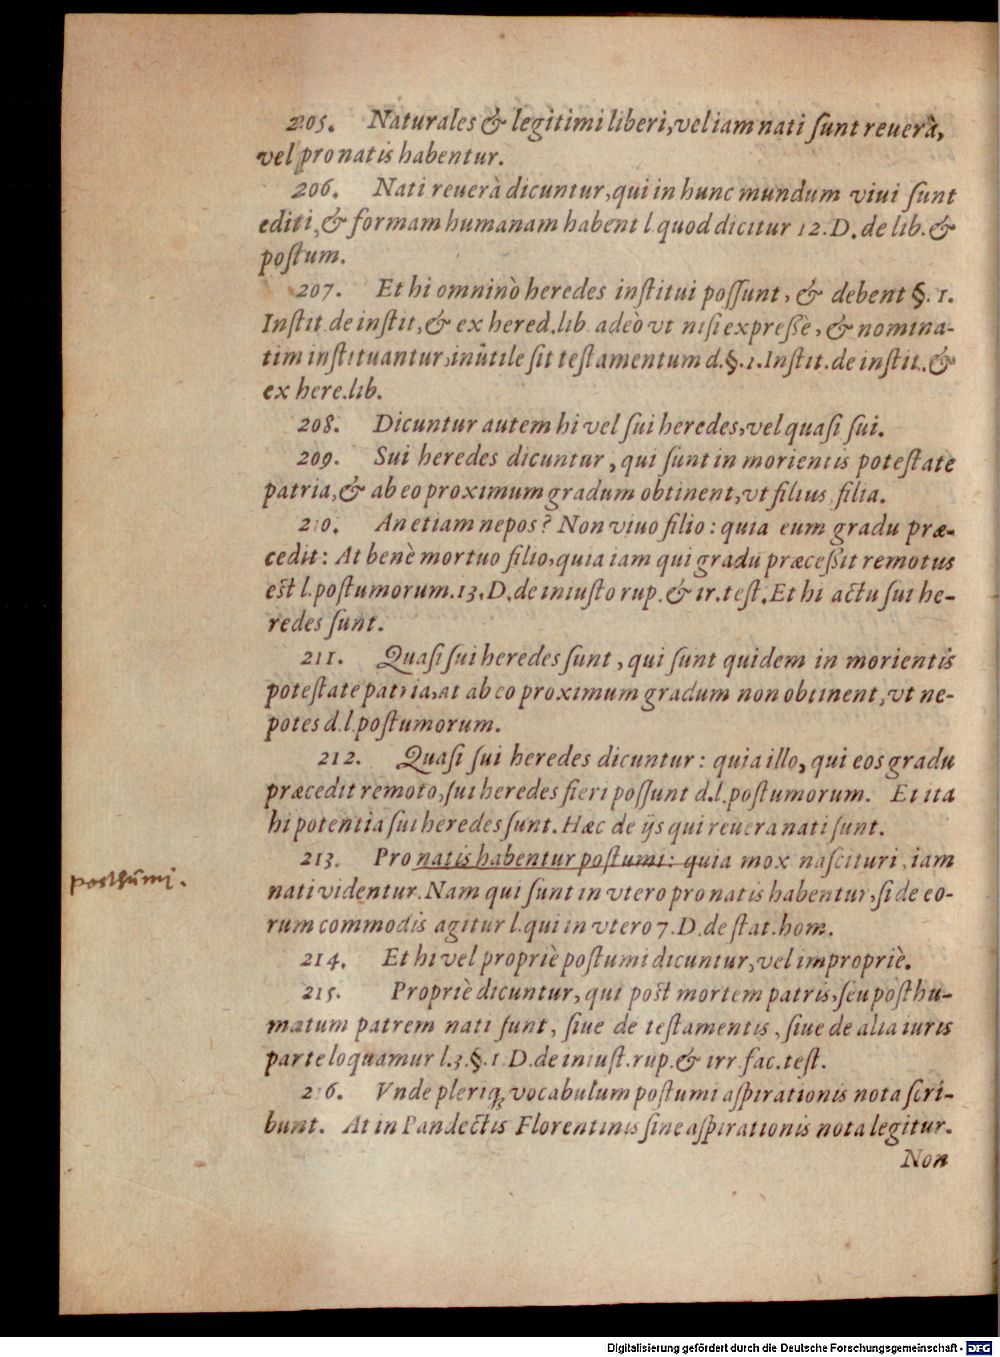 205. Naturales & legitimi liberi, vel iam nati ſunt reuerà,
vel pro natis habentur.
206. Nati reuerà dicuntur, qui in hunc mundum viui ſunt
editi, & formam humanam habent l. quod dicitur 12. D. de lib. &
poſtum.
207. Et hi omninò heredes inſtitui poſſunt, & debent §. 1.
Inſtit. de inſtit, & ex hered. lib. adeò vt niſi expreſsè, & nomina-
tim inſtituantur, inûtile ſit teſtamentum d. §. 1. Inſtit. de inſtit. &
ex here. lib.
208. Dicuntur autem hi vel ſui heredes, vel quaſi ſui.
209. Sui heredes dicuntur, qui ſunt in morientis poteſtate
patria, & ab eo proximum gradum obtinent, vt filius, filia.
210. An etiam nepos? Non viuo filio: quia eum gradu præ-
cedit: At benè mortuo filio, quia iam qui gradu præceſsit remotus
eſt l. poſtumorum. 13. D. de iniuſto rup. & ir. teſt. Et hi actu ſui he-
redes ſunt.
211. Quaſi ſui heredes ſunt, qui ſunt quidem in morientis
poteſtate patria, at ab eo proximum gradum non obtinent, vt ne-
potes d. l. poſtumorum.
212. Quaſi ſui heredes dicuntur: quia illo, qui eos gradu
præcedit remoto, ſui heredes fieri poſſunt d. l. poſtumorum. Et ita
hi potentia ſui heredes ſunt. Hæc de ijs qui reuera nati ſunt.
213. Pro natis habentur poſtumi: quia mox naſcituri, iam
posthūmj.
nati videntur. Nam qui ſunt in vtero pro natis habentur, ſi de eo-
rum commodis agitur l. qui in vtero 7. D. de ſtat. hom.
214. Et hi vel propriè poſtumi dicuntur, vel impropriè.
215. Propriè dicuntur, qui poſt mortem patris, ſeu poſt hu-
matum patrem nati ſunt, ſiue de teſtamentis, ſiue de alia iuris
parte loquamur l. 3. §. 1. D. de iniuſt. rup. & irr. fac. teſt.
216. Vnde pleriq; vocabulum poſtumi aſpirationis nota ſcri-
bunt. At in Pandectis Florentinis ſine aſpirationis nota legitur.
Non
Digitalisierung gefördert durch die Deutsche Forschungsgemeinschaft - DFG